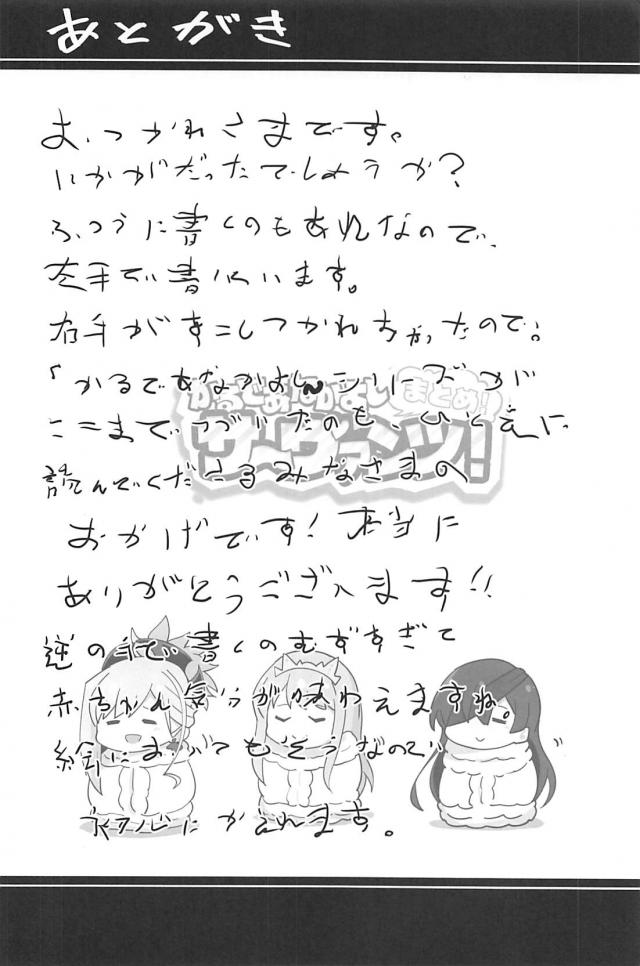 あとがき
おつかれさまです。
いかがだったでしょうか?
ふつうに書くのもあれなので、
左手で書いています。
右手がすこしつかれちゃったので。
「かるであなかよし」シリーズが
ここまでつづいたのも、ひとえに
読んでくださるみなさまの
おかげです!本当に
ありがとうございます!!
逆の手で書くのむずすぎて
赤ちゃん気分が味わえますね。
絵においてもそうなので
初心にかえれます。
かるであなかよし
まとめ!
サーヴァンツ!